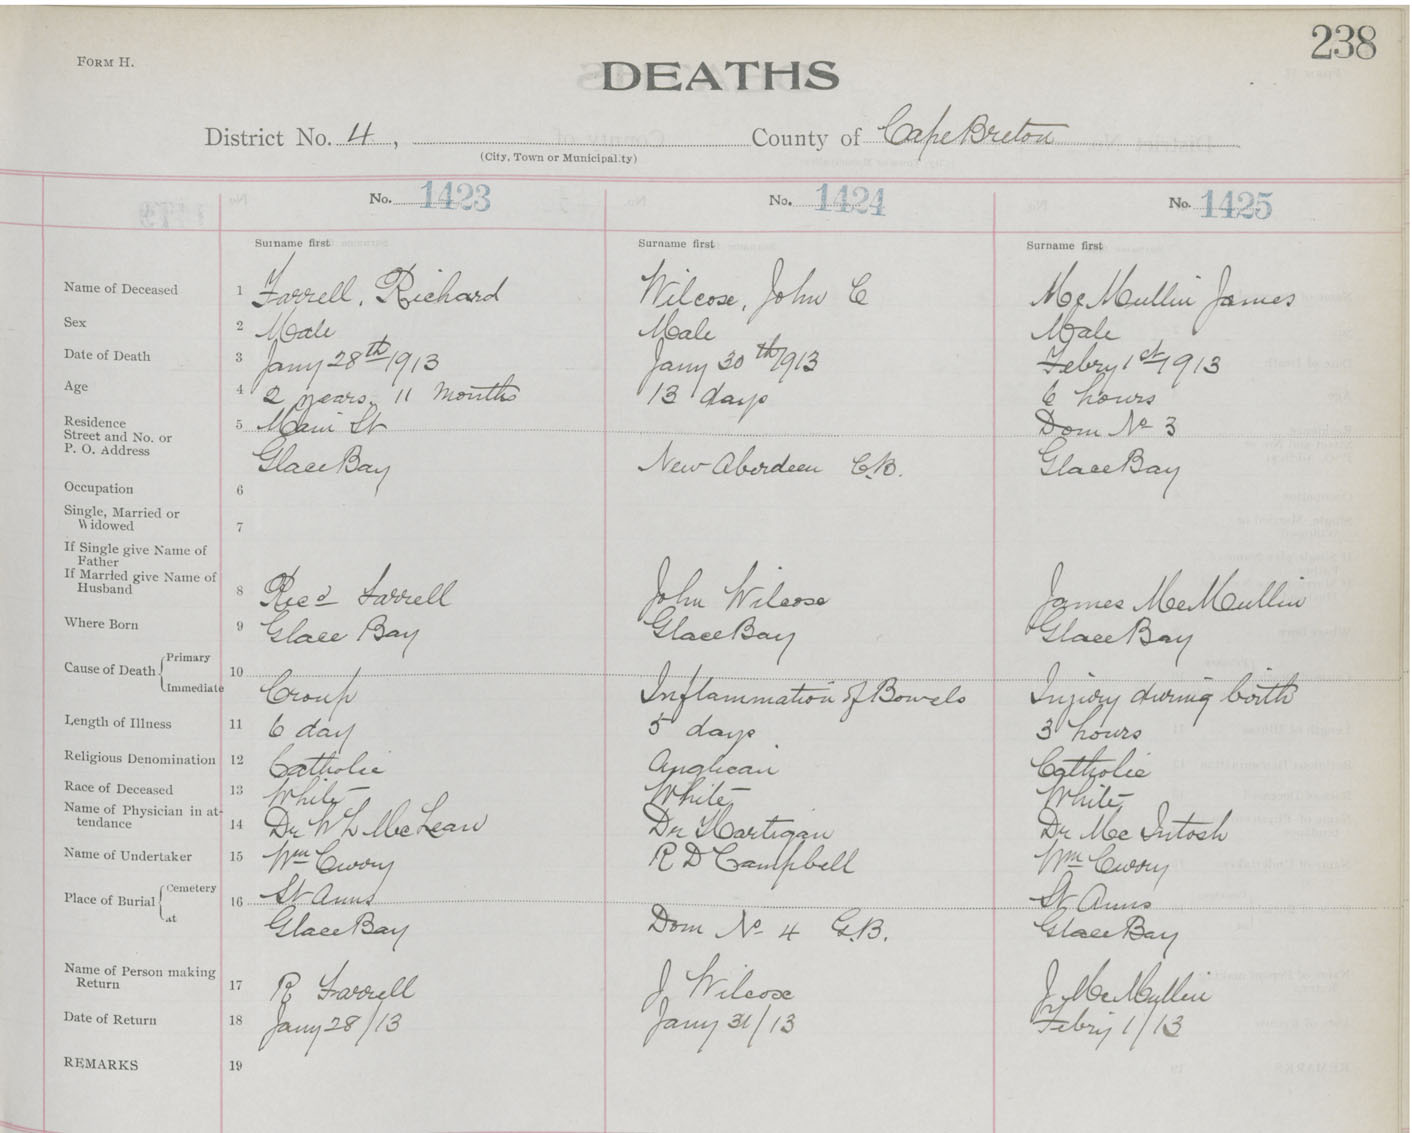 238
FORM H.
DEATHS
District No. 4, County of Cape Breton
(City, Town or Municipal.ty)
No. 1423 No. 1424 No. 1425
Surname first Surname first Surname first
Name of Deceased 1 Farrell, Richard Wilcose, John C McMullin James
Sex 2 Male Male Male
Date of Death 3 Jany 28th 1913 Jany 30th 1913 Febry 1st 1913
Age 4 2 years, 11 months 13 days 6 hours
Residence 5 Main St Dom No 3
Street and No. or
P. O. Address Glace Bay New Aberdeen C.B. Glace Bay
Occupation 6
Single, Married or
Widowed 7
If Single give Name of
Father
If Married give Name of
Husband 8 Ricd Farrell John Wilcose James McMullin
Where Born 9 Glace Bay Glace Bay Glace Bay
Cause of Death Primary 10
Immediate Croup Inflammation of Bowels Injury during birth
Length of Illness 11 6 day 5 days 3 hours
Religious Denomination 12 Catholic Anglican Catholic
Race of Deceased 13 White White White
Name of Physician in at-
tendance 14 Dr W L McLean Dr Hartigan Dr McIntosh
Name of Undertaker 15 Wm Curry R D Campbell Wm Curry
Place of Burial Cemetery 16 St Anns St Anns
at Glace Bay Dom No 4 G.B. Glace Bay
Name of Person making
Return 17 R Farrell J Wilcose J McMullin
Date of Return 18 Jany 28/13 Jany 31/13 Febry 1/13
REMARKS 19